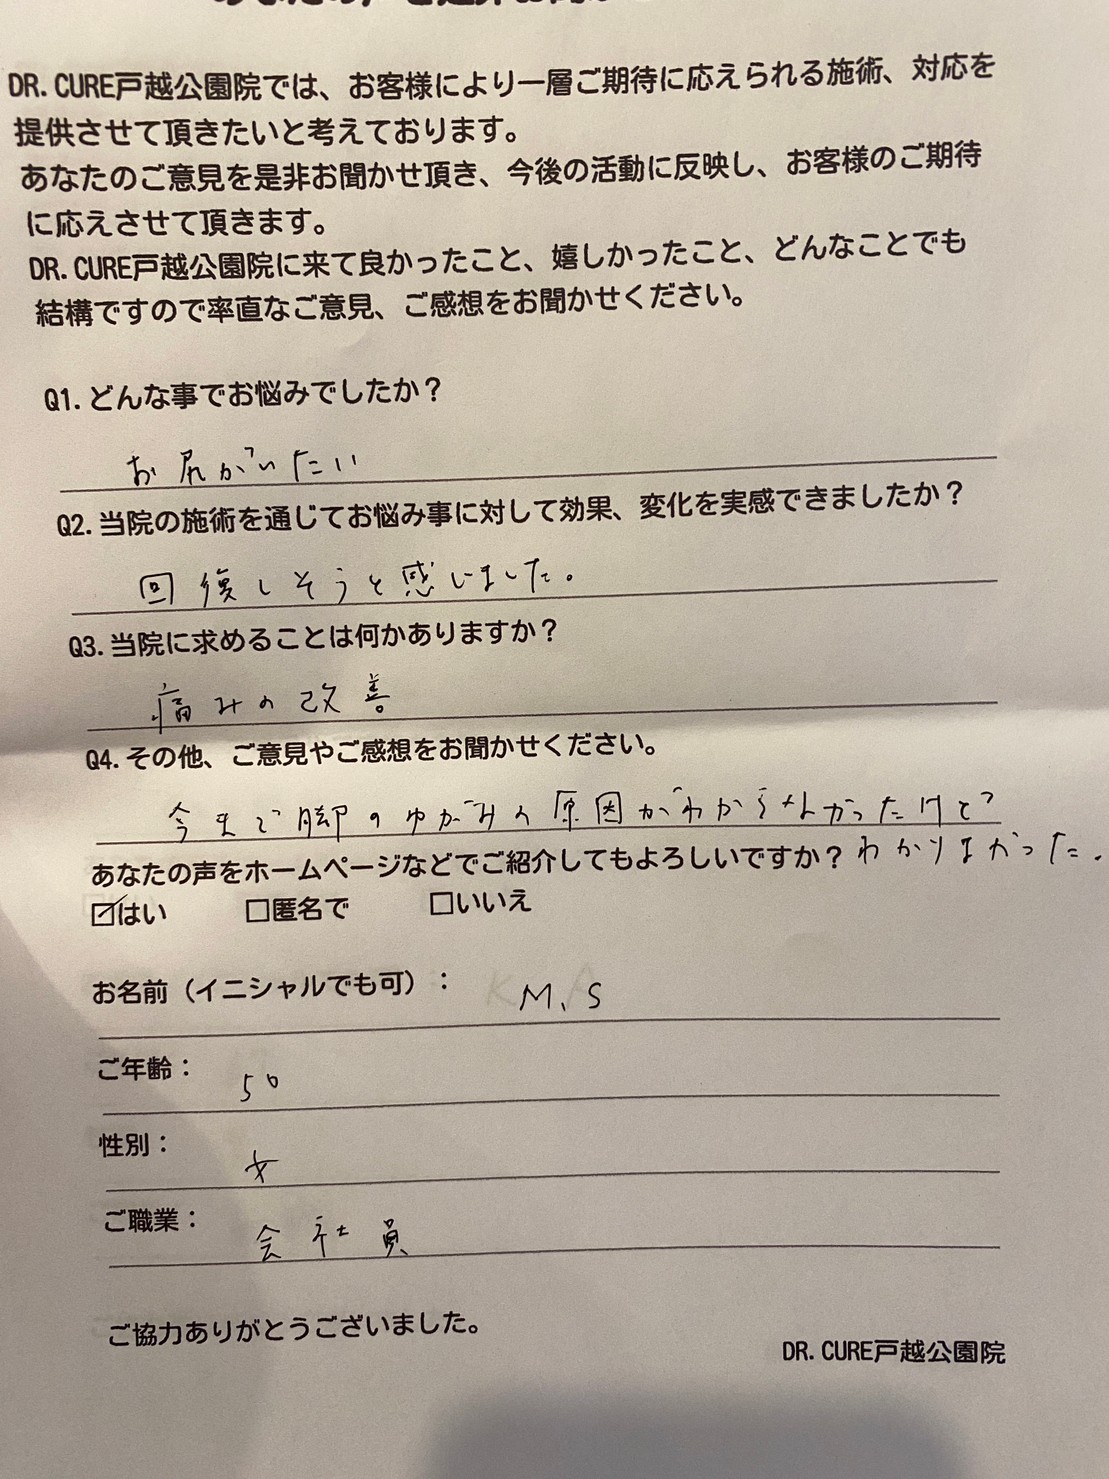 DR. CURE戸越公園院では、お客様により一層ご期待に応えられる施術、対応を
提供させて頂きたいと考えております。
あなたのご意見を是非お聞かせ頂き、今後の活動に反映し、お客様のご期待
に応えさせて頂きます。
DR. CURE戸越公園院に来て良かったこと、嬉しかったこと、どんなことでも
結構ですので率直なご意見、ご感想をお聞かせください。
Q1. どんな事でお悩みでしたか？
お尻がいたい
Q2. 当院の施術を通じてお悩み事に対して効果、変化を実感できましたか？
回復しそうと感じました。
Q3. 当院に求めることは何かありますか？
痛みの改善
Q4. その他、ご意見やご感想をお聞かせください。
今まで脚のゆがみの原因がわからなかったけど
わかりよかった.
あなたの声をホームページなどでご紹介してもよろしいですか？
☑はい □匿名で □いいえ
お名前（イニシャルでも可）： M, S
ご年齢： 50
性別： 女
ご職業： 会社員
ご協力ありがとうございました。
DR. CURE戸越公園院